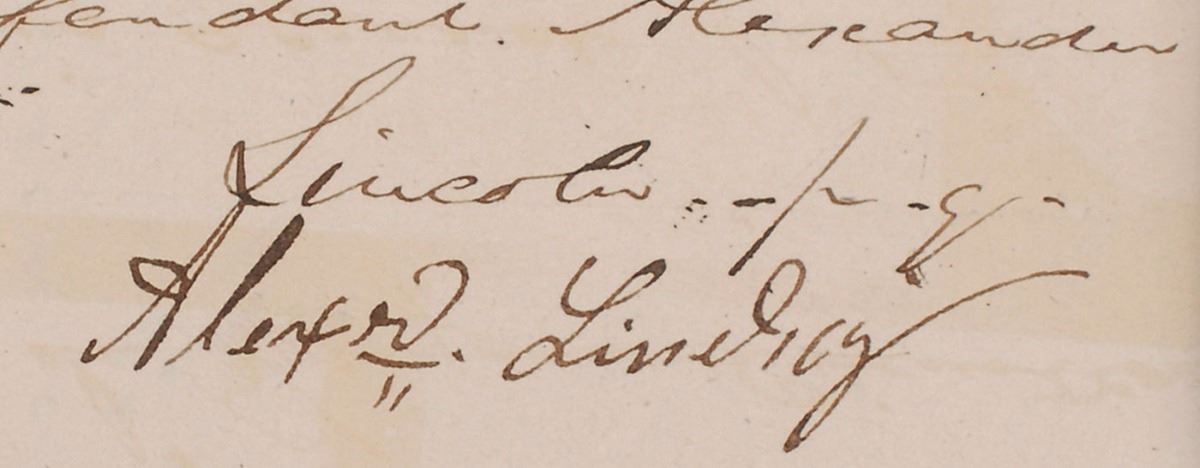 fendant. Alexander
Lincoln - p. q.
Alexr. Lindsay